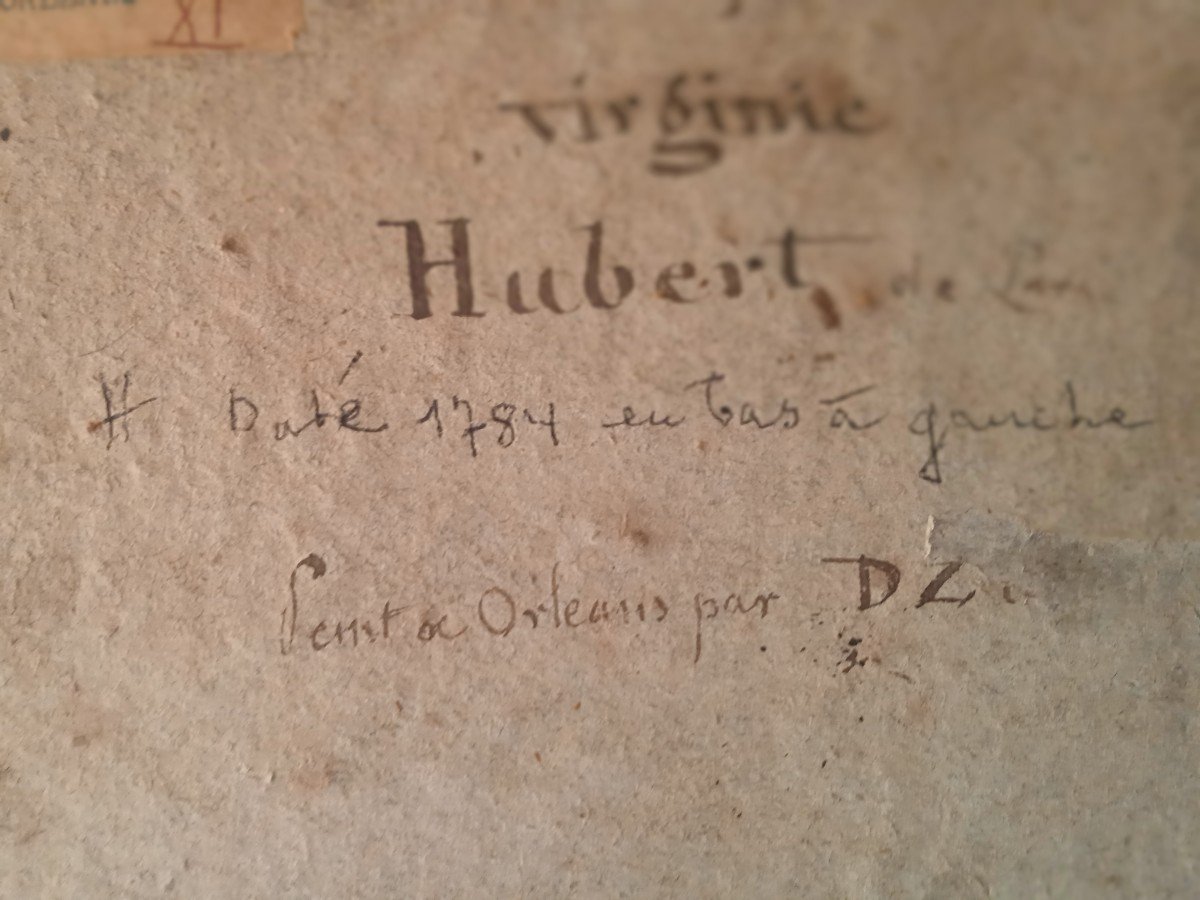 XI
virginie
Hubert de
# Daté 1784 en bas à gauche
Peint a Orleans par DL